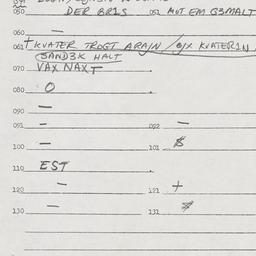 050 DER BR1S 051 MUT EM G3MALT
060 —
061 + KVATER TROGT ARAJN / 0JX KVATER1N /
SAND3K HALT
070 VAX NAXT
080 O
090 —
091 — 092 —
100 — 101 $
110 EST
120 — 121 +
130 — 131